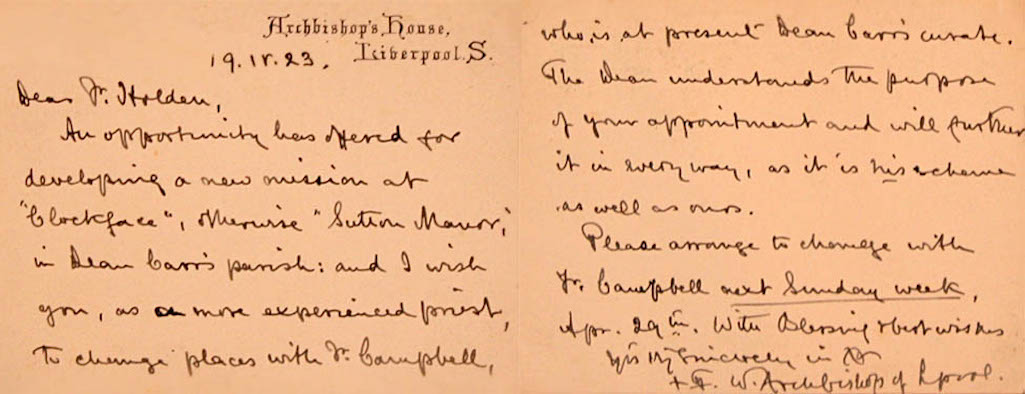 Archbishop's House,
Liverpool. S.
19. IV. 23.
Dear Fr. Holden,
An opportunity has offered for
developing a new mission at
"Clockface", otherwise "Sutton Manor",
in Dean Carr's parish: and I wish
you, as a more experienced priest,
to change places with Fr. Campbell,
who is at present Dean Carr's curate.
The Dean understands the purpose
of your appointment and will further
it in every way, as it is his scheme
as well as ours.
Please arrange to change with
Fr. Campbell next Sunday week,
Apr. 29th. With Blessing & best wishes
Yrs sincerely in
+ F. W. Archbishop of Lpool.